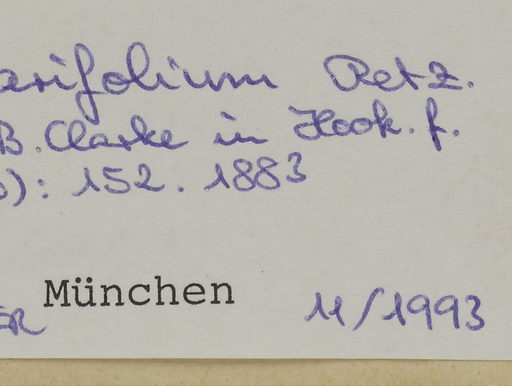 arifolium Retz.
B. Clarke in Hook. f.
): 152. 1883
ER München 11/1993